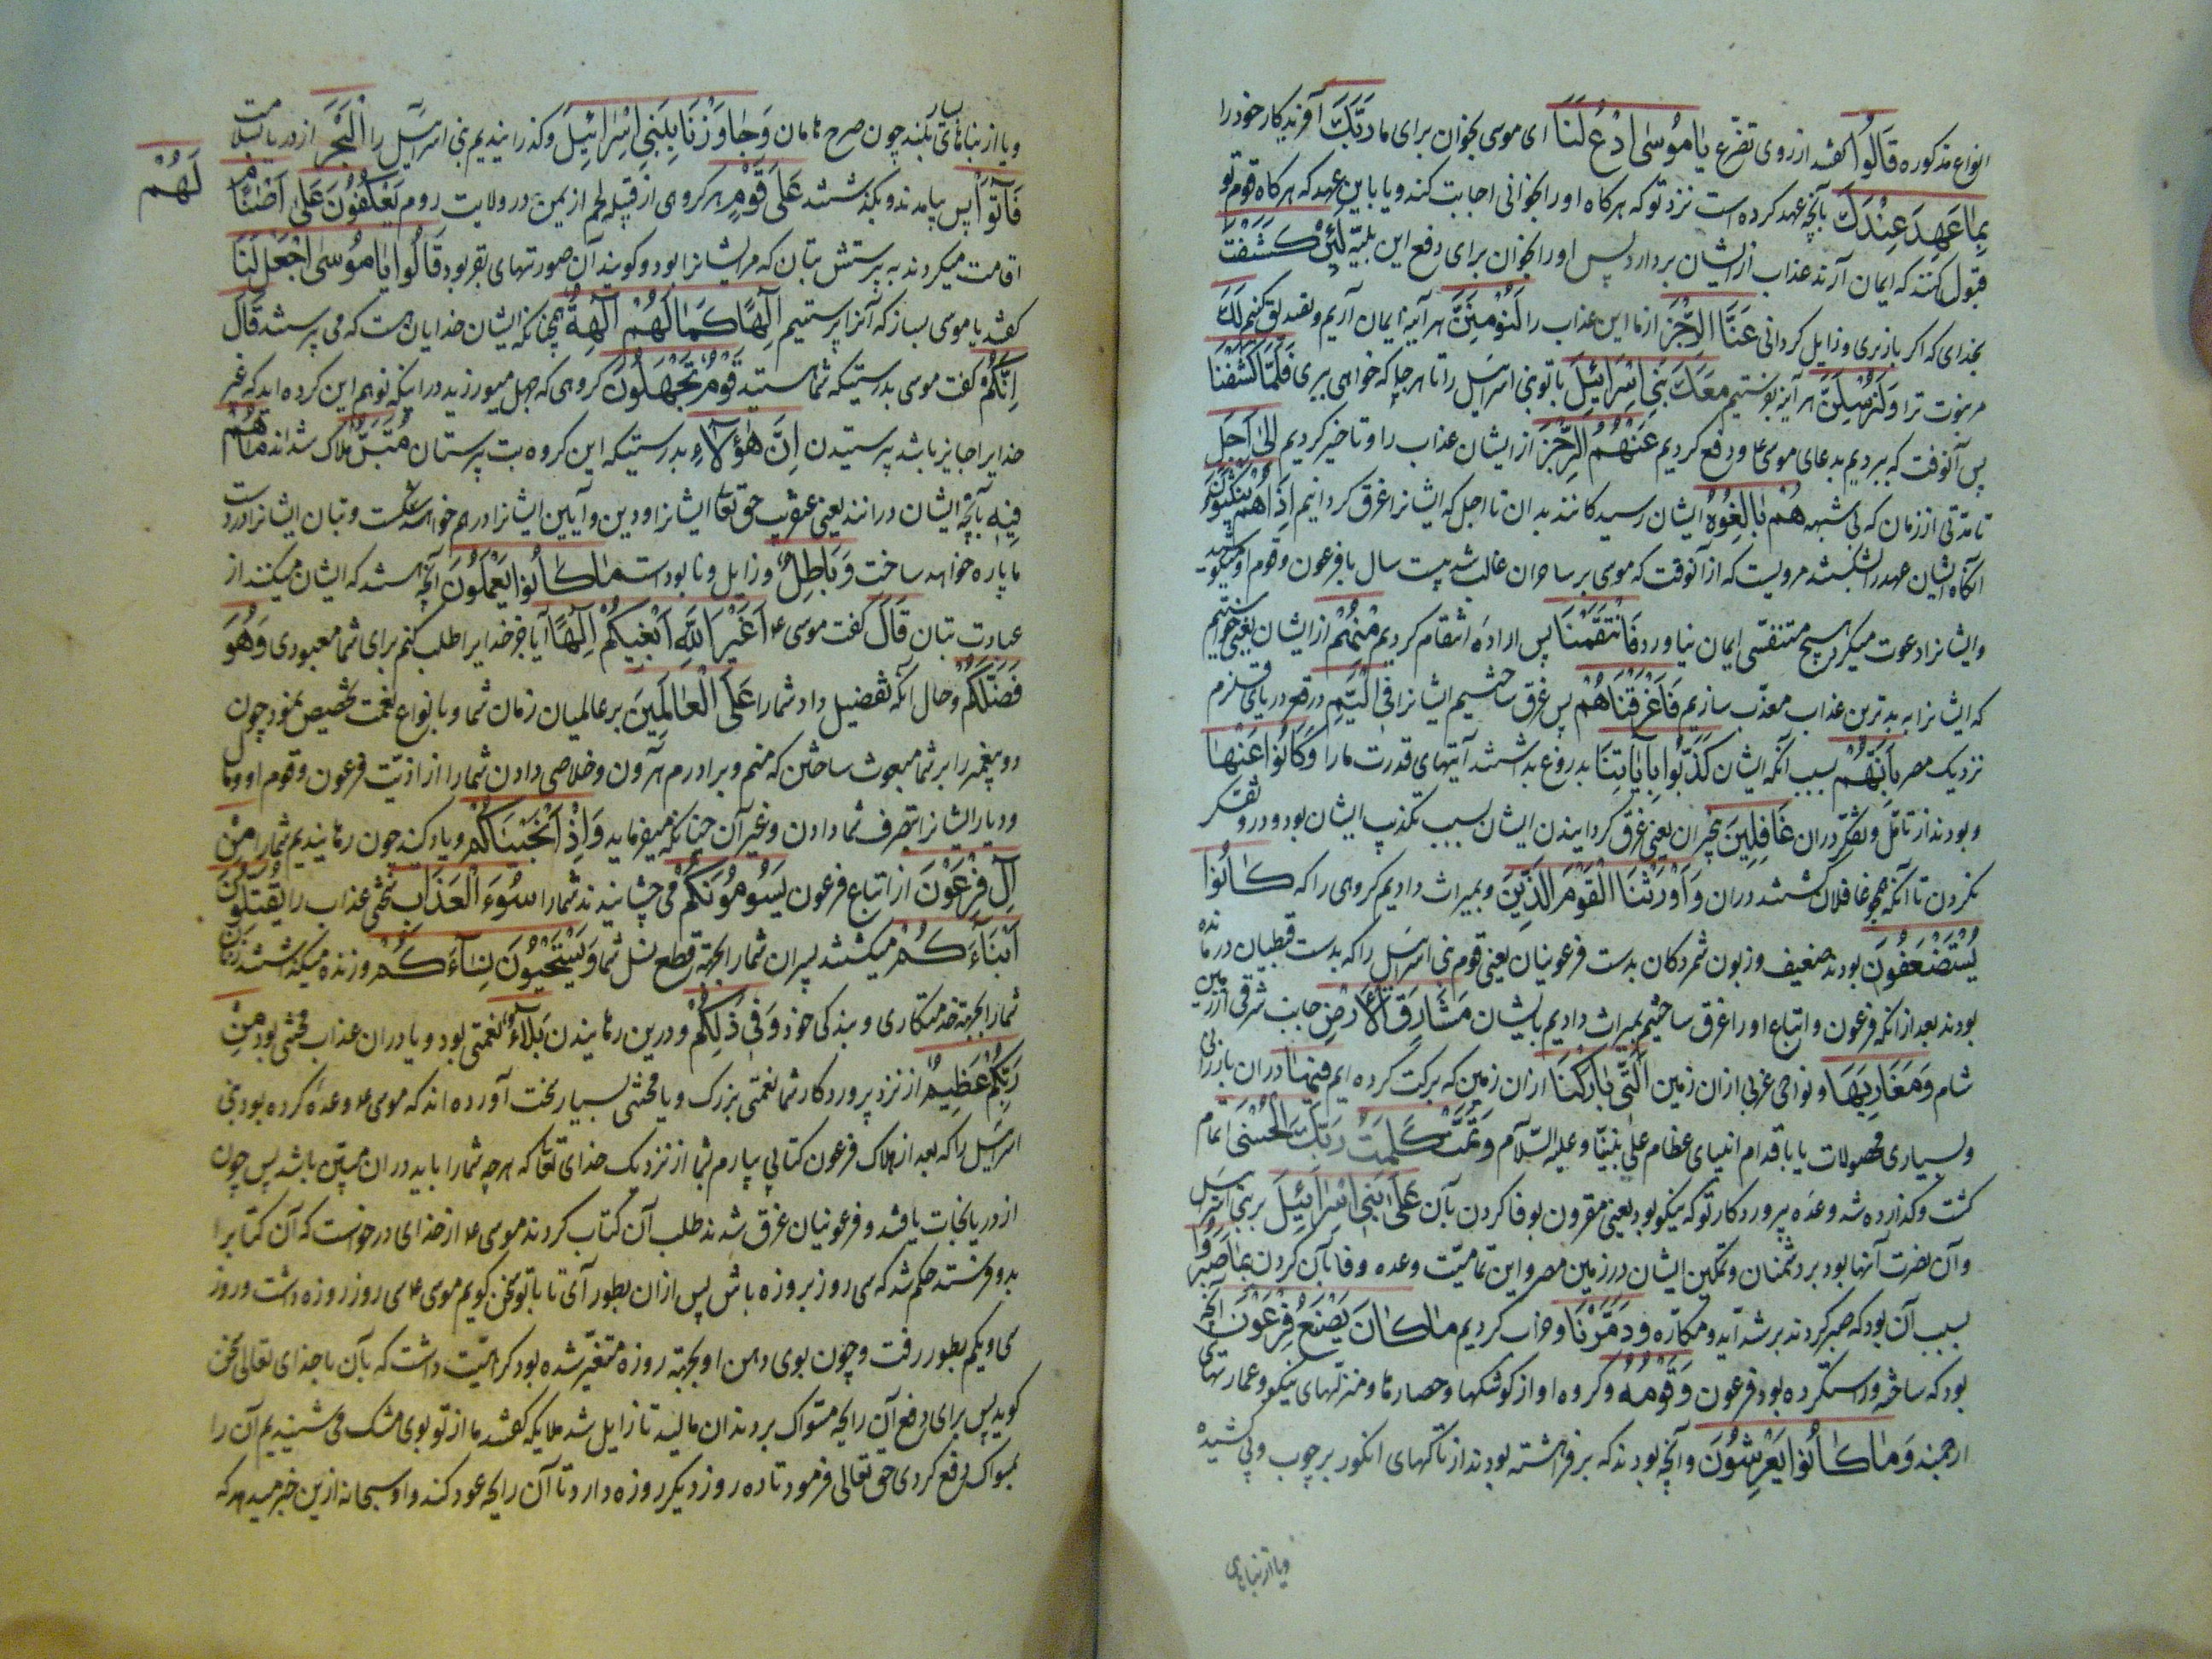 انواع مذکوره قَالُوا کفتند از روی تضرّع یَا مُوسَی ادْعُ لَنَا ای موسی بخوان برای ما رَبَّکَ آفریدکار خود را
بِمَا عَهِدَ عِنْدَکَ بآنچه عهد کرده است نزد تو که هر کاه او را بخوانی اجابت کند و یا باین عهد که هر کاه قوم تو
قبول کنند که ایمان آرند عذاب از ایشان بردارد پس او را بخوان برای دفع این بلیّه لَئِنْ کَشَفْتَ
بخدای که اکر باز بری و زایل کردانی عَنَّا الرِّجْزَ از ما این عذاب را لَنُؤْمِنَنَّ هر آینه ایمان آریم و تصدیق کنیم لَکَ
مر نبوت ترا وَلَنُرْسِلَنَّ هر آینه بفرستیم مَعَکَ بَنِی اِسْرَائِیلَ با تو بنی اسرائیل را تا هر جا که خواهی ببری فَلَمَّا کَشَفْنَا
پس آنوقت که ببردیم بدعای موسی ع و دفع کردیم عَنْهُمُ الرِّجْزَ از ایشان عذاب را و تاخیر کردیم اِلٰی اَجَلٍ
تا مدتی از زمان که بی شبهه هُمْ بَالِغُوهُ ایشان رسیدکانند بدان تا اجل که ایشانرا غرق کردانیم اِذَا هُمْ یَنْکُثُونَ
آنکاه ایشان عهد را شکستند مرویست که از آنوقت که موسی بر ساحران غالب شد بیست سال با فرعون و قوم او میکوشید
و ایشانرا دعوت میکرد هیچ متنفسی ایمان نیاورد فَانْتَقَمْنَا پس اراده انتقام کردیم مِنْهُمْ از ایشان یعنی خواستیم
که ایشانرا به بدترین عذاب معذّب سازیم فَاَغْرَقْنَاهُمْ پس غرق ساختیم ایشانرا فِی الْیَمِّ در قعر دریای قلزم
نزدیک مصر بِاَنَّهُمْ بسبب آنکه ایشان کَذَّبُوا بِاٰیَاتِنَا بدروغ بداشتند آیتهای قدرت ما را وَکَانُوا عَنْهَا
و بودند از تامّل و تفکّر در ان غَافِلِینَ بیخبران یعنی غرق کردانیدن ایشان بسبب تکذیب ایشان بود و در و تفکر
نکردن تا آنکه همچو غافلان کشتند دران وَاَوْرَثْنَا الْقَوْمَ الَّذِینَ و بمیراث دادیم کروهی را که کَانُوا
یُسْتَضْعَفُونَ بودند ضعیف و زبون شمردکان بدست فرعونیان یعنی قوم بنی اسرائیل را که بدست قبطیان در مانده
بودند بعد از انکه فرعون و اتباع او را غرق ساختیم بمیراث دادیم بایشان مَشَارِقَ الْاَرْضِ جانب شرقی از زمین
شام وَمَغَارِبَهَا و نواحی غربی از ان زمین الَّتِی بَارَکْنَا از ان زمین که برکت کرده ایم فِیهَا دران بارزانی
و بسیاری محصولات یا باقدام انبیای عظام علی نبیّنا و علیهم السّلام وَتَمَّتْ کَلِمَتُ رَبِّکَ الْحُسْنٰی و تمام
کشت و کذارده شد وعده پروردکار تو که نیکو بود یعنی مقرون بوفا کردن بآن عَلٰی بَنِی اِسْرَائِیلَ بر بنی اسرائیل
و آن نصرت آنها بود بر دشمنان و تمکین ایشان در زمین مصر و این تمامیّت وعده و وفا بآن کردن بِمَا صَبَرُوا
بسبب آن بود که صبر کردند بر شداید و مکاره وَدَمَّرْنَا و خراب کردیم مَا کَانَ یَصْنَعُ فِرْعَوْنُ آنچه
بود که ساخته و راست کرده بود فرعون وَقَوْمُهُ و کروه او از کوشکها و حصارها و منزلهای نیکو و عمارتهای
ارجمند وَمَا کَانُوا یَعْرِشُونَ و آنچه بودند که بر فراشته بودند از تاکهای انکور بر چوب و پی شیده
و یا از بناهای
و یا از بناهای بلند چون صرح هامان وَجَاوَزْنَا بِبَنِی اِسْرَائِیلَ و کذرانیدیم بنی اسرآئیل را الْبَحْرَ از دریا بسلامت
فَاَتَوْا پس بیامدند و بکذشتند عَلٰی قَوْمٍ بر کروهی از قبیله لخم از یمن در ولایت روم یَعْکُفُونَ عَلٰی اَصْنَامٍ
لَهُمْ
اقامت میکردند به پرستش بتان که مر ایشانرا بود و کویند آن صورتهای بقر بود قَالُوا یَا مُوسَی اجْعَلْ لَنَا
کفتند یا موسی بساز که آنرا پرستیم اِلٰهًا کَمَا لَهُمْ اٰلِهَةٌ همچنانکه ایشان خدایان هست که می پرستند قَالَ
اِنَّکُمْ کفت موسی بدرستیکه شما هستید قَوْمٌ تَجْهَلُونَ کروهی که جهل میورزید در اینکه توهم این کرده اید که غیر
خدایرا جایز باشد پرستیدن اِنَّ هٰؤُلَآءِ بدرستیکه این کروه بت پرستان مُتَبَّرٌ هلاک شده اند مَا هُمْ
فِیهِ بآنچه ایشان درانند یعنی عنقریب حق تعا ایشانرا و دین و آیین ایشانرا درهم خواهد شکست و بتان ایشانرا
پاره پاره خواهد ساخت وَبَاطِلٌ و زایل و نابود است مَا کَانُوا یَعْمَلُونَ آنچه هستند که ایشان میکنند از
عبادت بتان قَالَ کفت موسی ع اَغَیْرَ اللّٰهِ اَبْغِیکُمْ اِلٰهًا آیا جز خدایرا طلب کنم برای شما معبودی وَهُوَ
فَضَّلَکُمْ و حال آنکه تفضیل داد شما را عَلَی الْعَالَمِینَ بر عالمیان زمان شما و بانواع نعمت تخصیص نمود چون
دو پیغمبر را بر شما مبعوث ساختن که منم و برادرم هرون و خلاصی دادن شما را از اذیّت فرعون و قوم او و مال
و دیار ایشانرا بتصرف شما دادن و غیر آن چنانکه میفرماید وَاِذْ اَنْجَیْنَاکُمْ و یاد کنید چون رهانیدیم شما را مِنْ
اٰلِ فِرْعَوْنَ از اتباع فرعون یَسُومُونَکُمْ می چشانیدند شما را سُوٓءَ الْعَذَابِ سختی عذاب را یُقَتِّلُونَ
اَبْنَآءَکُمْ میکشتند پسران شما را بجهة قطع نسل شما وَیَسْتَحْیُونَ نِسَآءَکُمْ و زنده میکذاشتند زنان
شما را بجهة خدمتکاری و بندکی خود وَفِی ذٰلِکُمْ و درین رهانیدن بَلَآءٌ نعمتی بود و یا دران عذاب محنتی بود مِنْ
رَبِّکُمْ عَظِیمٌ از نزد پروردکار شما نعمتی بزرک و یا محنتی بسیار سخت آورده اند که موسی ع وعده کرده بود بنی
اسرائیل را که بعد از هلاک فرعون کتابی بیارم بشما از نزدیک خدای تعا که هر چه شما را باید دران مبیّن باشد پس چون
از دریا نجات یافتند و فرعونیان غرق شدند طلب آن کتاب کردند موسی ع از خدای درخواست که آن کتابرا
بدو فرستد حکم شد که سی روز بروزه باش پس از ان بطور آی تا با تو سخن کویم موسی ع سی روز روزه داشت و روز
سی و یکم بطور رفت و چون بوی دهن او بجهة روزه متغیّر شده بود کراهیّت داشت که بآن با خدای تعالی سخن
کوید پس برای دفع آن رایحه مسواک بر دندان مالید تا زایل شد ملایکه کفتند ما از تو بوی مشک می شنیدیم آن را
بمسواک دفع کردی حق تعالی فرمود تا ده روز دیکر روزه دارد تا آن رایحه عود کند و او سبحانه ازین خبر میدهد که